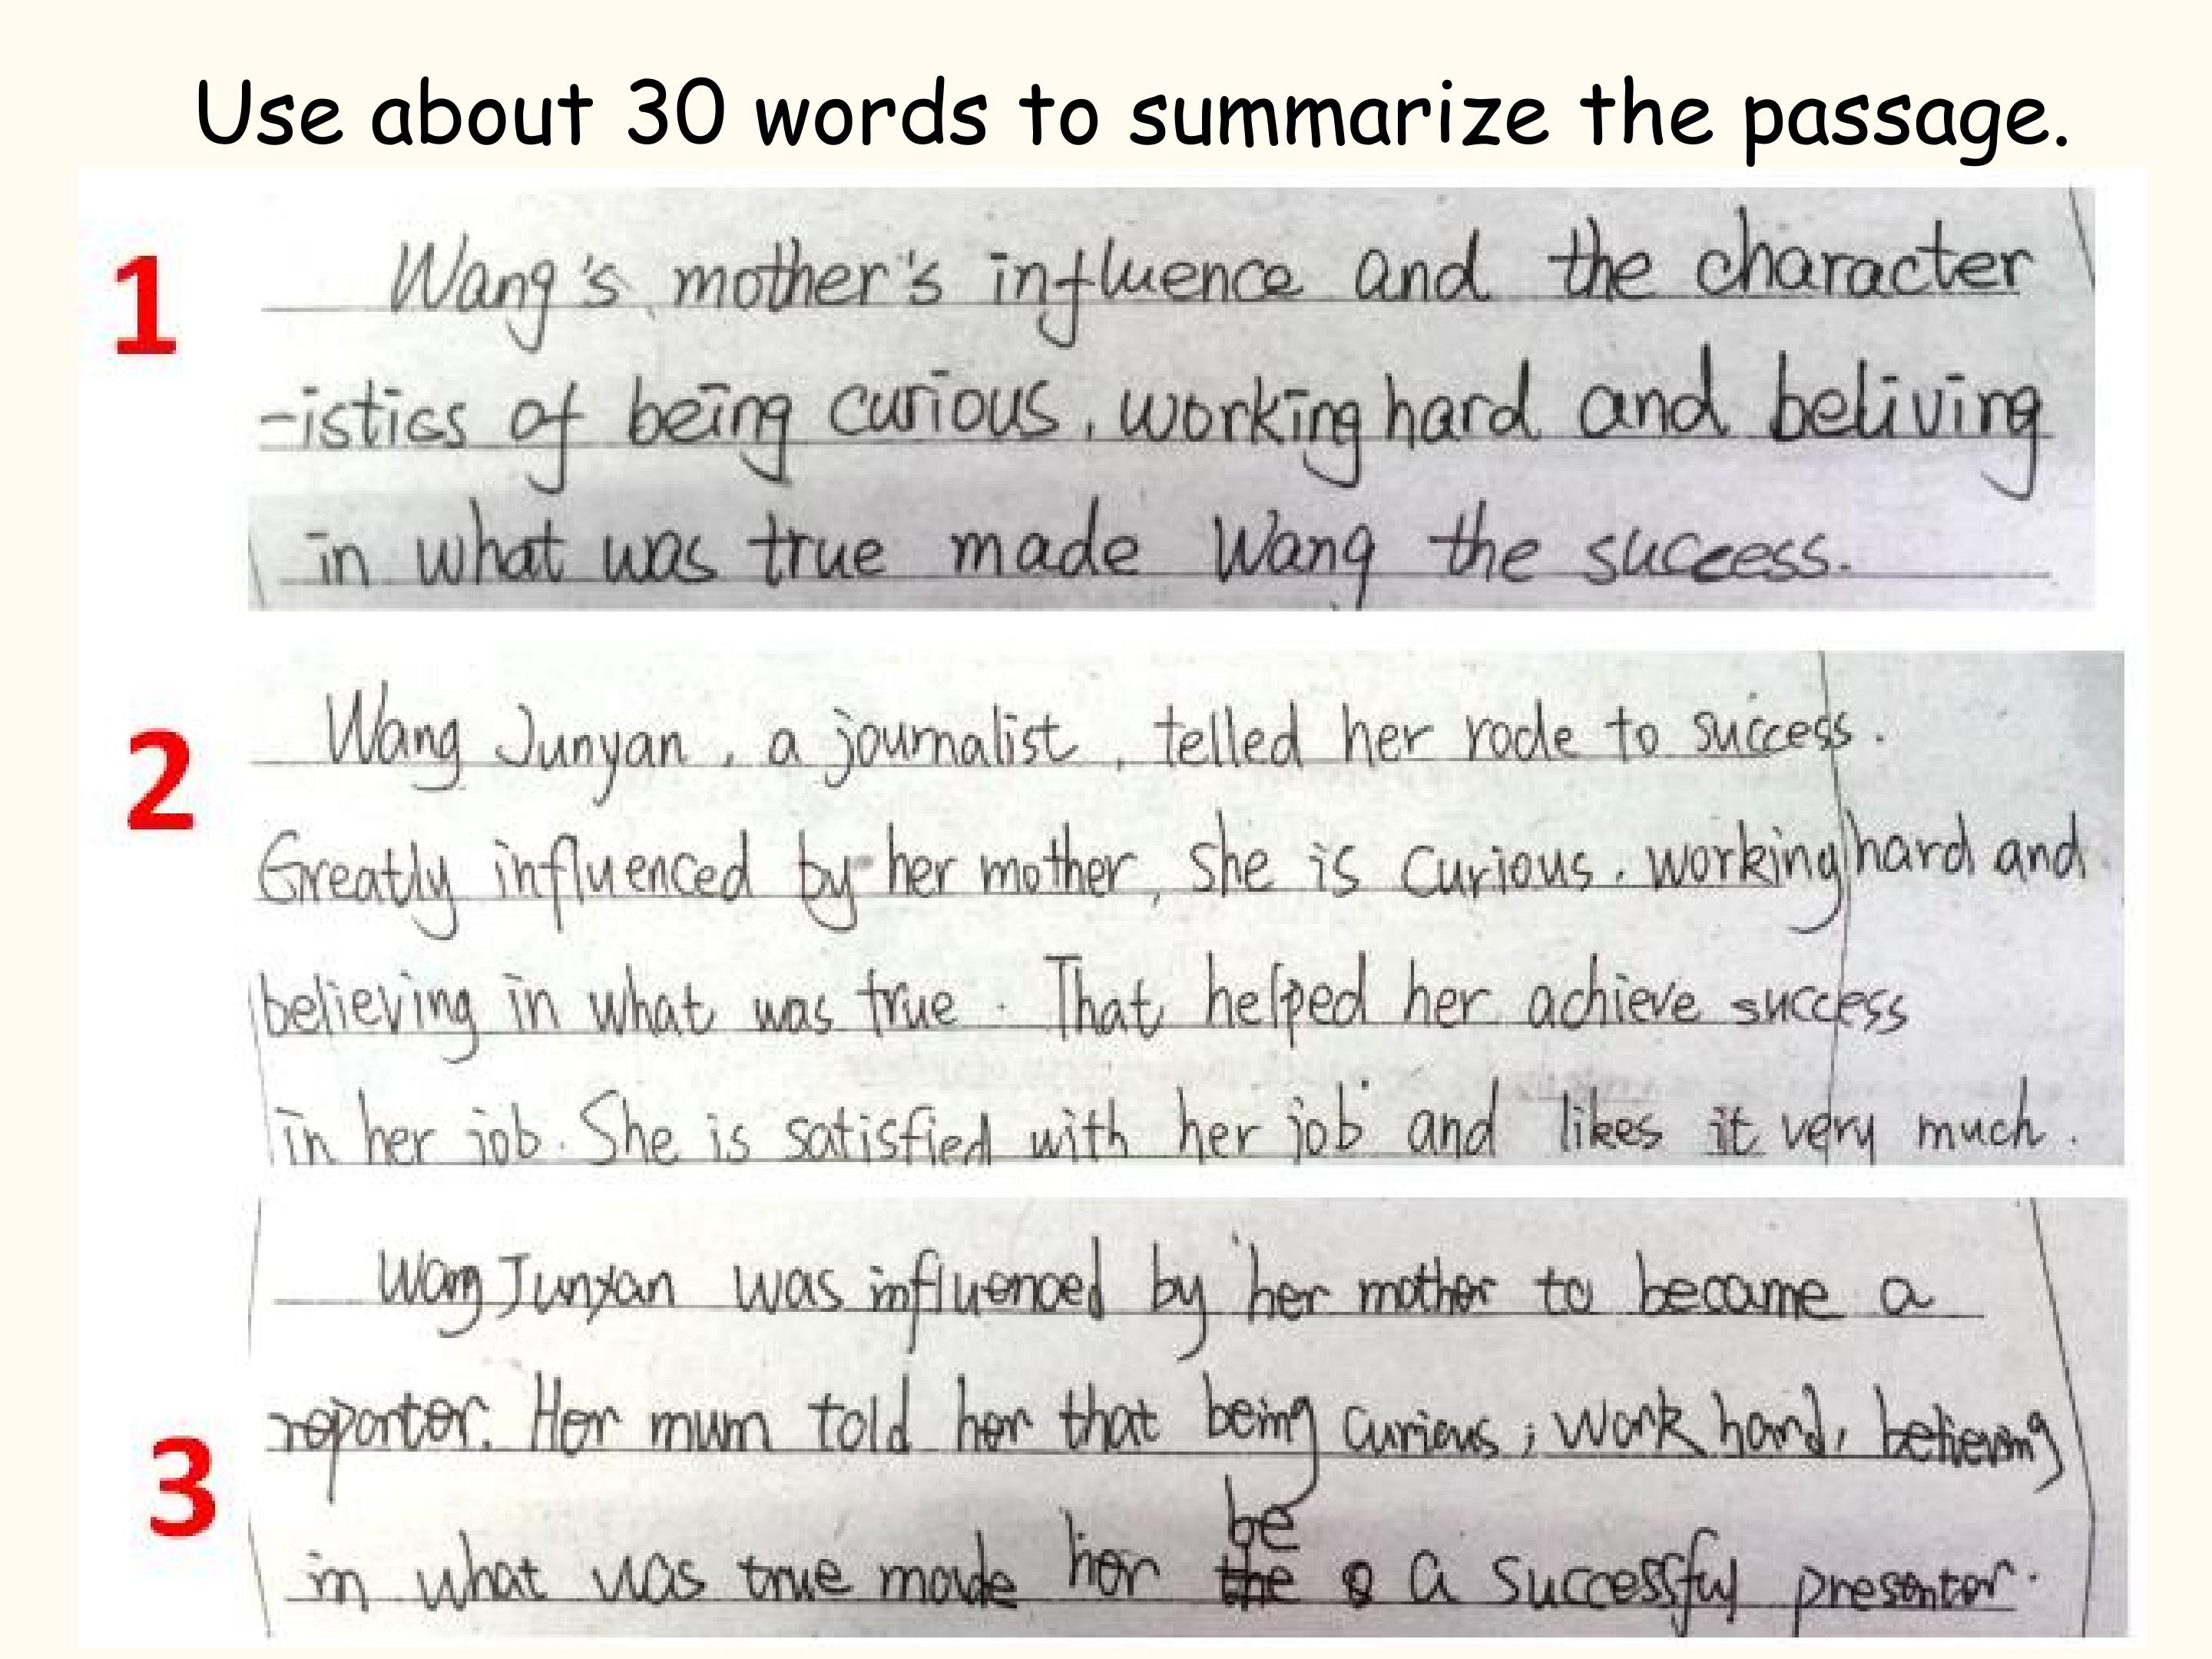 Use about 30 words to summarize the passage.
1
Wang's mother's influence and the character
-istics of being curious, working hard and beliving
in what was true made Wang the success.
2
Wang Junyan, a journalist, telled her rode to success.
Greatly influenced by her mother, she is curious, working hard and
believing in what was true. That helped her achieve success
in her job. She is satisfied with her job and likes it very much.
3
Wang Junyan was influenced by her mother to became a
reporter. Her mum told her that being curious, work hard, believing
be
in what was true made her the a successful presenter.